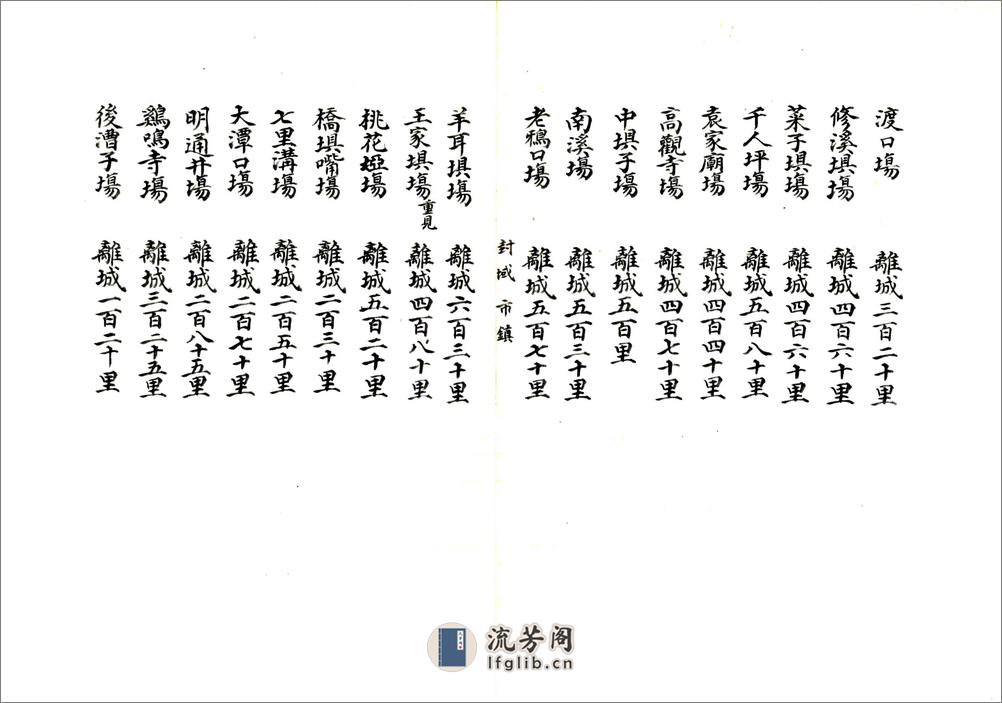 渡口塲 離城三百二十里
修溪埧塲 離城四百六十里
菜子埧塲 離城四百六十里
千人坪塲 離城五百八十里
袁家廟塲 離城四百四十里
高觀寺塲 離城四百七十里
中埧子塲 離城五百里
南溪塲 離城五百三十里
老鴉口塲 離城五百七十里
封域 市鎮
羊耳埧塲 離城六百三十里
王家埧塲重見 離城四百八十里
桃花埡塲 離城五百二十里
橋埧嘴塲 離城二百三十里
七里溝塲 離城二百五十里
大潭口塲 離城二百七十里
明通井塲 離城二百八十五里
鷄鳴寺塲 離城三百二十五里
後漕子塲 離城一百二十里
流芳阁
lfglib.cn